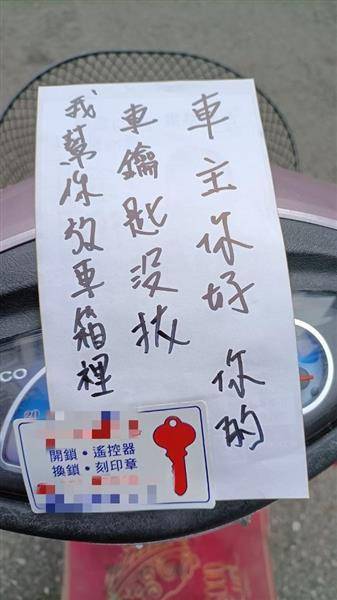 車主你好 你的
車鑰匙沒拔
我幫你放車箱裡
CO
20
開鎖・遙控器
換鎖・刻印章